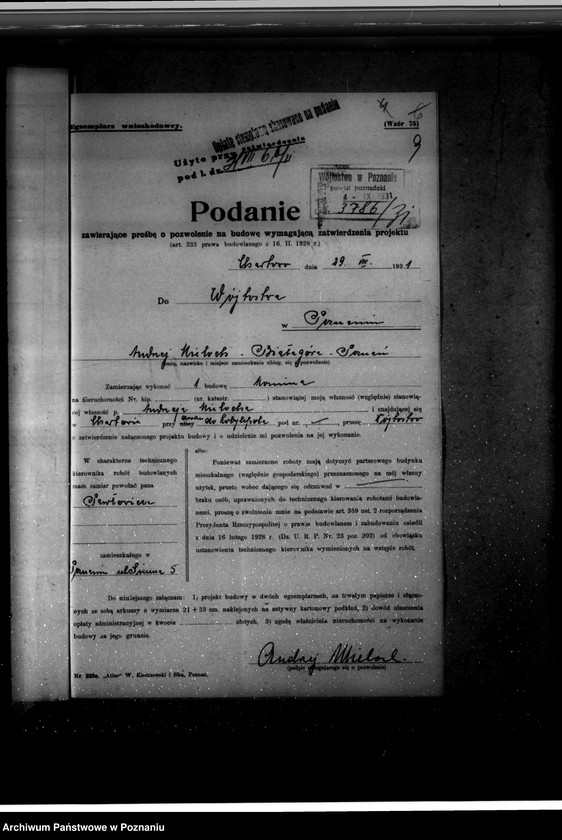 Egzemplarz wnioskodawcy.
Opłatę stemplową skasowano na podaniu
(Wzór 75)
9
Użyto przy zatwierdzeniu
pod l. dz.
Wójtostwo w Poznaniu
powiat poznański
3786/31
Podanie
zawierające prośbę o pozwolenie na budowę wymagającą zatwierdzenia projektu
(art. 333 prawa budowlanego z 16. II. 1928 r.)
dnia 29. VIII. 1931
Do Wójtostwa
w Poznaniu
Andrzej Mieloch - Białagóra - Poznań
(imię, nazwisko i miejsce zamieszkania ubieg. się o pozwolenie)
Zamierzając wykonać 1 budowę Komina
na nieruchomości Nr. hip. (nr. katastr. ) stanowiącej moją własność (względnie) stanowią-
cej własność p. Andrzeja Mielocha i znajdującej się
w przy drodze do Kobylepole pod nr. , proszę Wójtostwo
ulicy
o zatwierdzenie załączonego projektu budowy i o udzielenie mi pozwolenia na jej wykonanie.
W charakterze technicznego
kierownika robót budowlanych
mam zamiar powołać pana
Pawłowicz
zamieszkałego w
Poznaniu ul. 5
albo:
Ponieważ zamierzone roboty mają dotyczyć parterowego budynku
mieszkalnego (względnie gospodarskiego) przeznaczonego na mój własny
użytek, przeto wobec dającego się odczuwać w
braku osób, uprawnionych do technicznego kierowania robotami budowla-
nemi, proszę o zwolnienie mnie na podstawie art. 359 ust. 2 rozporządzenia
Prezydenta Rzeczypospolitej o prawie budowlanem i zabudowaniu osiedli
z dnia 16 lutego 1928 r. (Dz. U. R. P. Nr. 23 poz. 202) od obowiązku
ustanowienia technicznego kierownika wymienionych na wstępie robót.
Do niniejszego załączam: 1) projekt budowy w dwóch egzemplarzach, na trwałym papierze i złączo-
nych ze sobą arkuszy o wymiarze 21 + 33 cm. naklejonych na sztywny kartonowy podkład, 2) dowód uiszczenia
opłaty administracyjnej w kwocie złotych, 3) zgodę właściciela nieruchomości na wykonanie
budowy na jego gruncie.
Andrzej Mieloch
(podpis ubiegającego się o pozwolenie)
Nr. 335a. „Atlas" W. Kaczewski i Ska, Poznań.
Archiwum Państwowe w Poznaniu